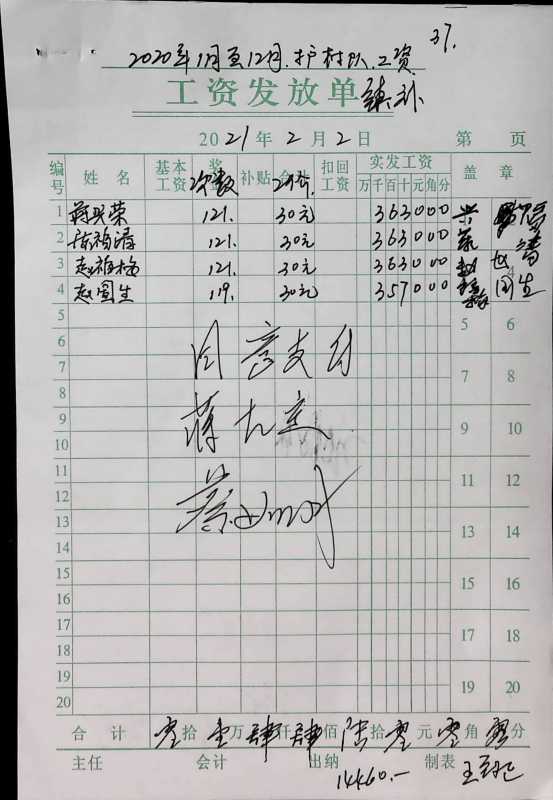 37.
2020年1月至12月.护村队.工资
工资发放单 镇补
2021年2月2日 第 页
编号 姓名 基本工资 奖 次数 补贴 合计 扣回工资 实发工资 万千百十元角分 盖章
1 蒋兴荣 121. 30元 363000
2 121. 30元 363000
3 赵祖梅 121. 30元 363000 4
4 赵国生 119. 30元 357000 国生
5 5 6
6
7 同意支付 7 8
8
9 蒋 9 10
10
11 11 12
12
13 13 14
14
15 15 16
16
17 17 18
18
19 19 20
20
合计 零拾壹万肆仟肆佰陆拾零元零角零分
主任 会计 出纳 制表
14460.—